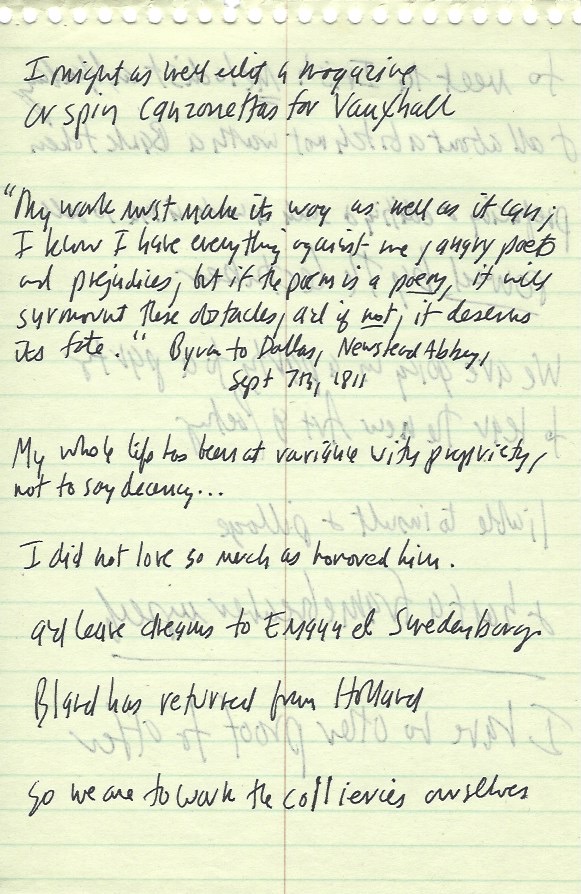 I might as well edit a magazine
or spin canzonettas for Vauxhall
"My work must make its way as well as it can;
I know I have everything against me, angry poets
and prejudices; but if the poem is a poem, it will
surmount these obstacles, and if not, it deserves
its fate." Byron to Dallas, Newstead Abbey,
Sept 7th, 1811
My whole life has been at variance with propriety,
not to say decency...
I did not love so much as honored him.
and leave dreams to Emanuel Swedenborg.
Bland has returned from Holland
So we are to work the collieries ourselves
I have no other proof to offer
liable to insult & pillage